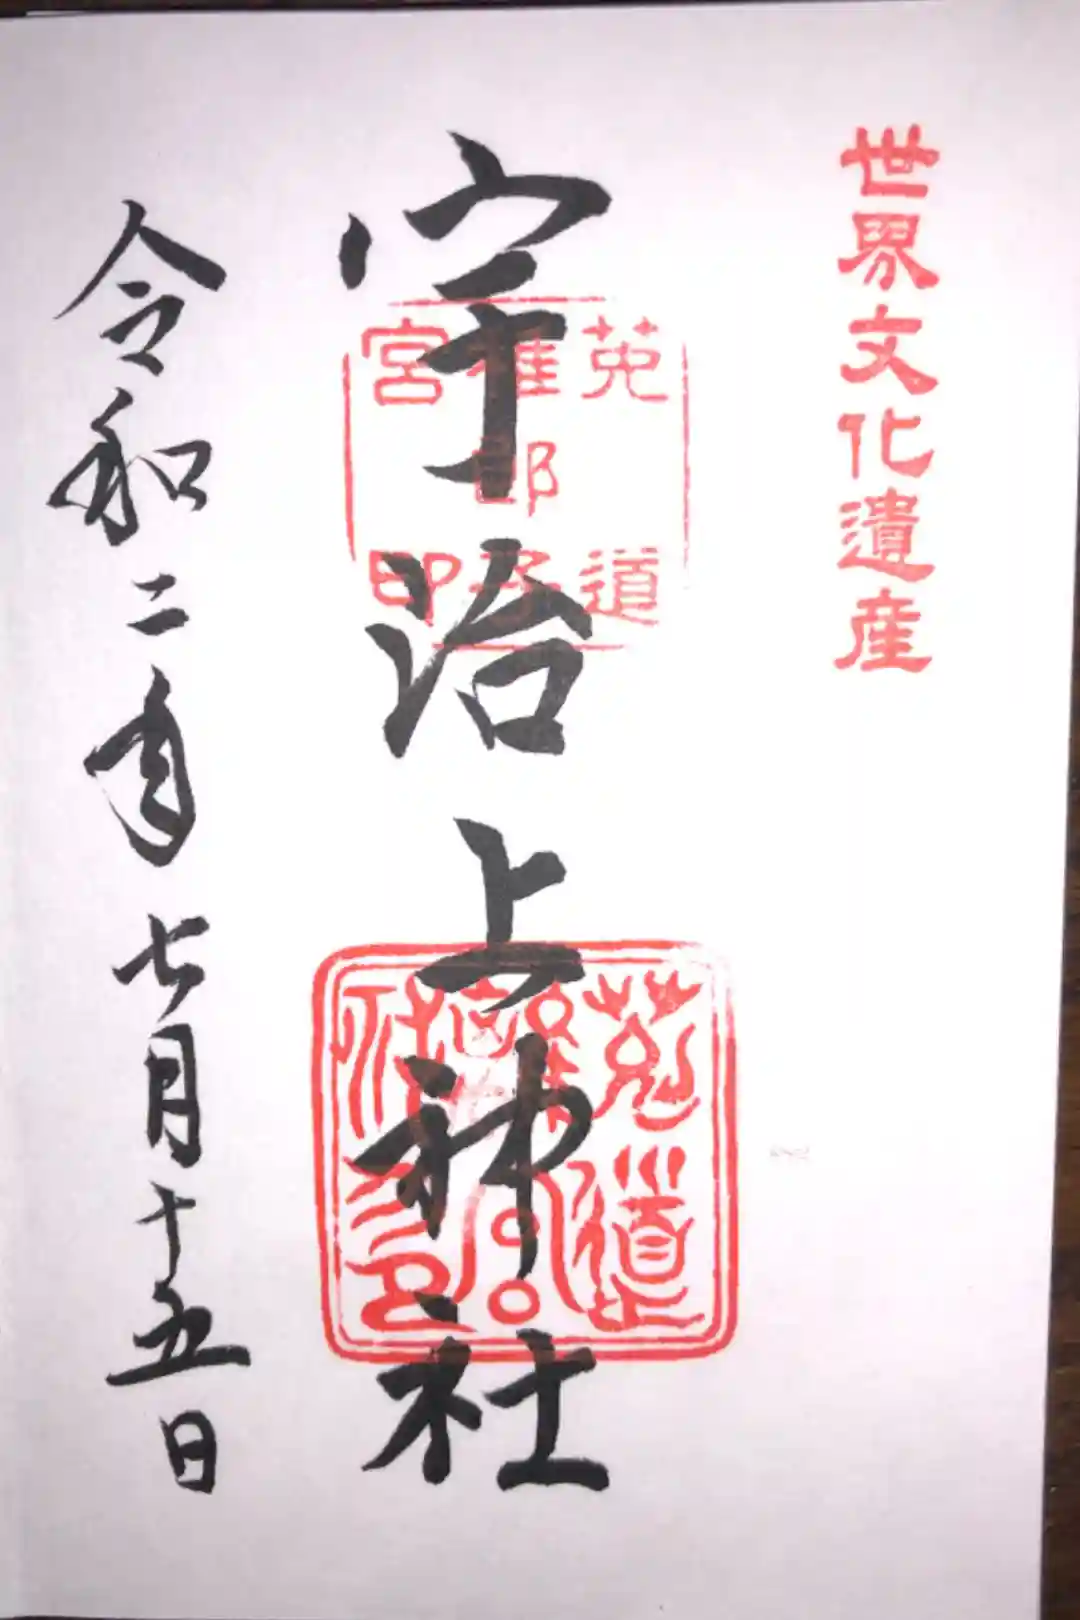 世界文化遺産
宇治上神社
莵道
稚郎子
宮印
令和二年七月十五日